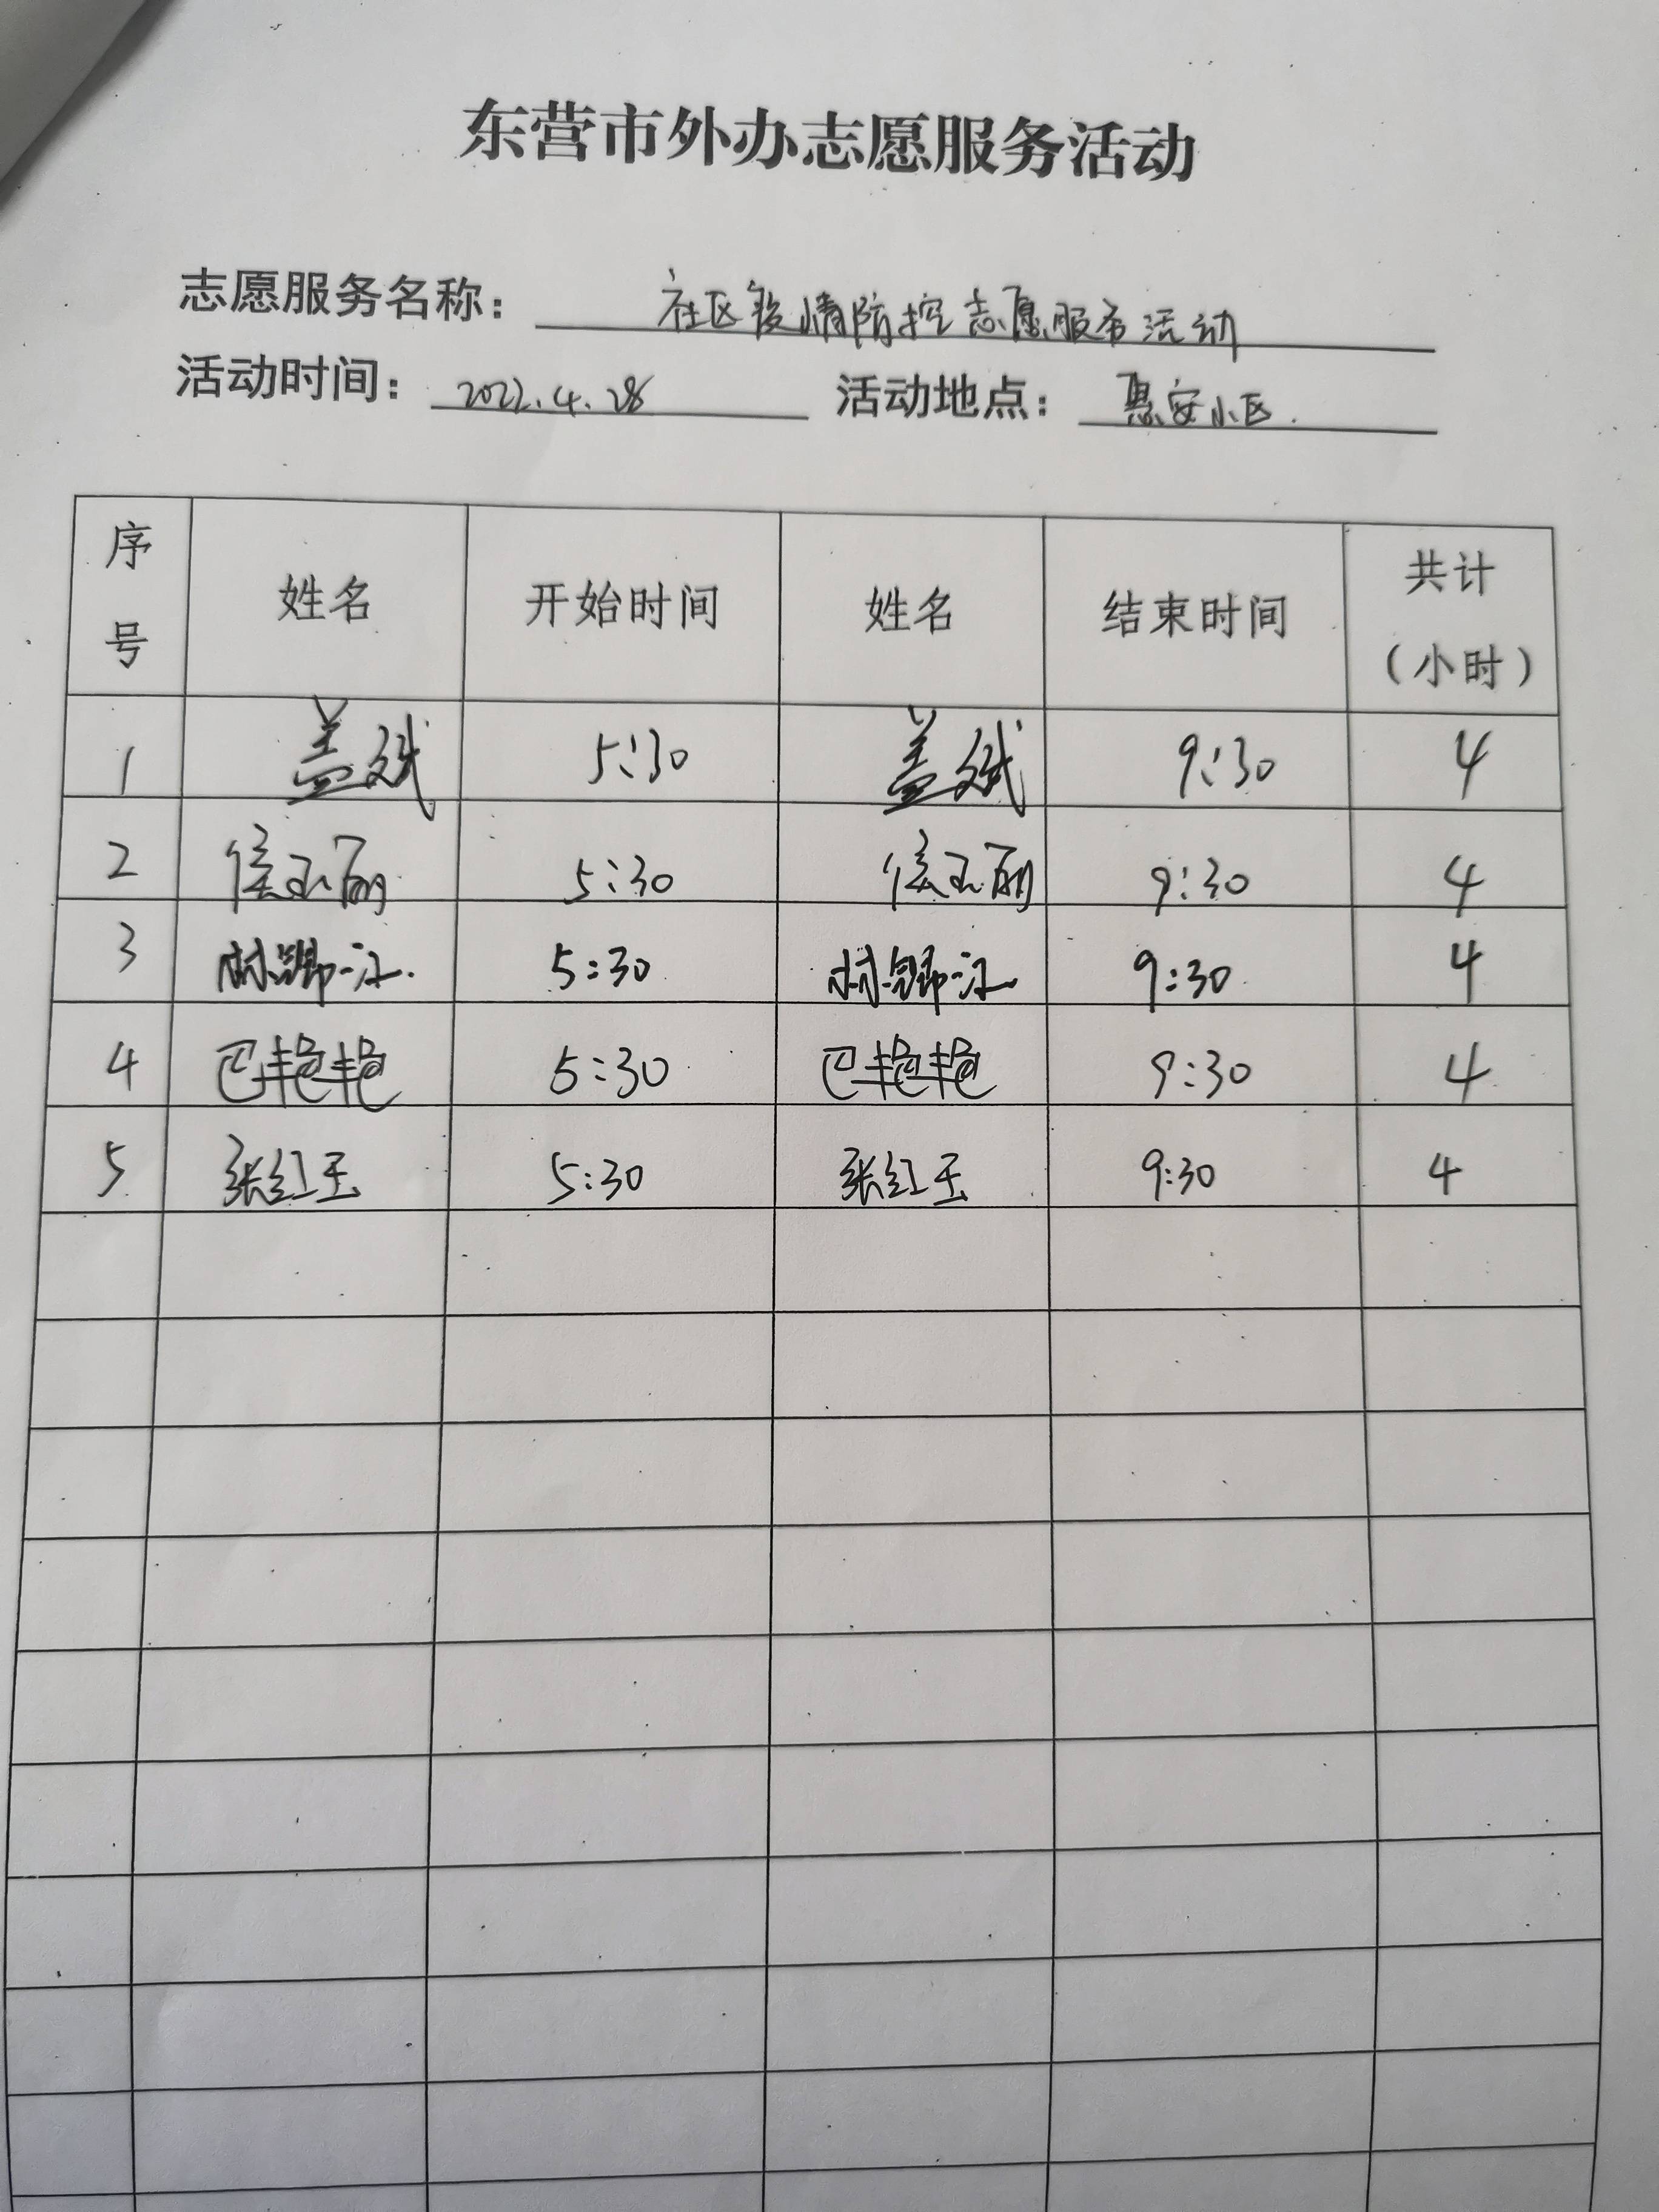 东营市外办志愿服务活动
志愿服务名称： 社区疫情防控志愿服务活动
活动时间： 2022.4.28 活动地点： 惠安小区.
序号 姓名 开始时间 姓名 结束时间 共计（小时）
1 盖斌 5:30 盖斌 9:30 4
2 侯玉丽 5:30 侯玉丽 9:30 4
3 5:30 9:30 4
4 巴艳艳 5:30 巴艳艳 9:30 4
5 张红玉 5:30 张红玉 9:30 4